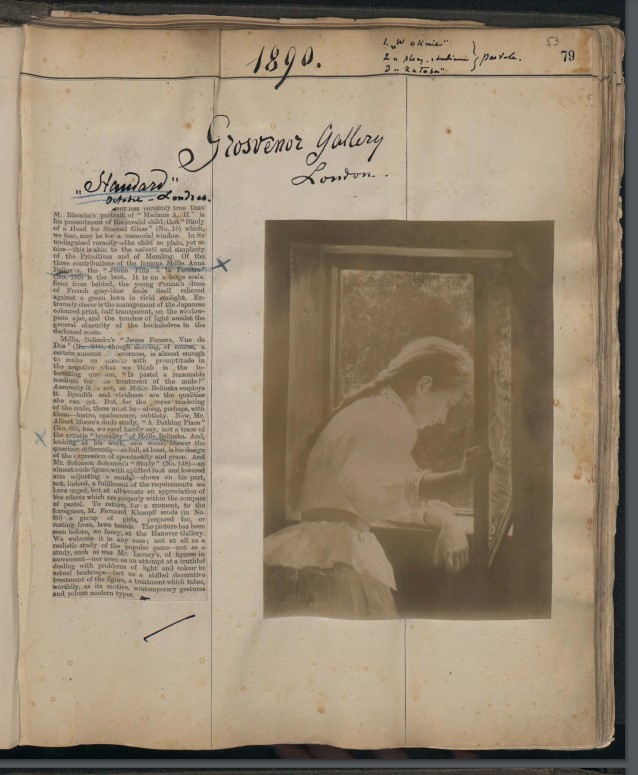 53
79
1890.
1. „W oknie"
2 „
3 „
pastele.
Grosvenor Gallery
London.
„Standard"
Octobre - Londres.
not less certainly true than
M. Blanche's portrait of "Madame A. H" is
his presentment of the invalid child; that "Study
of a Head for Stained Glass" (No. 18) which,
we fear, may be for a memorial window. In its
undisguised veracity—the child so plain, yet so
nice—this is akin to the naïveté and simplicity
of the Primitives and of Memling. Of the
three contributions of the famous Mdlle. Anna
Belinska, the "Jeune Fille à la Fenêtre"
(No. 155) is the best. It is on a large scale.
Seen from behind, the young woman's dress
of French gray-blue finds itself relieved
against a green lawn in vivid sunlight. Ex-
tremely clever is the management of the Japanese
coloured print, half transparent, on the window-
pane ajar, and the touches of light amidst the
general obscurity of the bookshelves in the
darkened room.
Mdlle. Belinska's "Jeune Femme, Vue de
Dos" though showing, of course, a
certain amount cleverness, is almost enough
to make us answer with promptitude in
the negative what we think is the in-
teresting question, "Is pastel a reasonable
medium for the treatment of the nude?"
Assuredly it is not, as Mdlle. Belinska employs
it. Breadth and vividness are the qualities
she can get. But, for the proper rendering
of the nude, there must be—along, perhaps, with
these—lustre, opalescence, subtlety. Now, Mr.
Albert Moore's nude study, "A Bathing Place"
has, we need hardly say, not a trace of
the artistic "brutality" of Mdlle. Belinska. And,
looking at his work, one would answer the
question differently—so full, at least, is his design
of the expression of spontaneity and grace. And
Mr. Solomon Solomon's "Study" (No. 148)—an
almost nude figure, with uplifted foot and lowered
arm adjusting a sandal—shows on his part,
not, indeed, a fulfilment of the requirements we
have urged, but at all events an appreciation of
the effects which are properly within the compass
of pastel. To return, for a moment, to the
foreigners, M. Fernand Khnopff sends (in No.
89) a group of girls, prepared for, or
resting from, lawn tennis. The picture has been
seen before, we fancy, at the Hanover Gallery.
We welcome it in any case; not at all as a
realistic study of the popular game—not as a
study, such as was Mr. Lavery's, of figures in
movement—nor even as an attempt at a truthful
dealing with problems of light and colour in
actual landscape—but as a skilled decorative
treatment of the figure, a treatment which takes,
worthily, as its motive, contemporary gestures
and robust modern types.